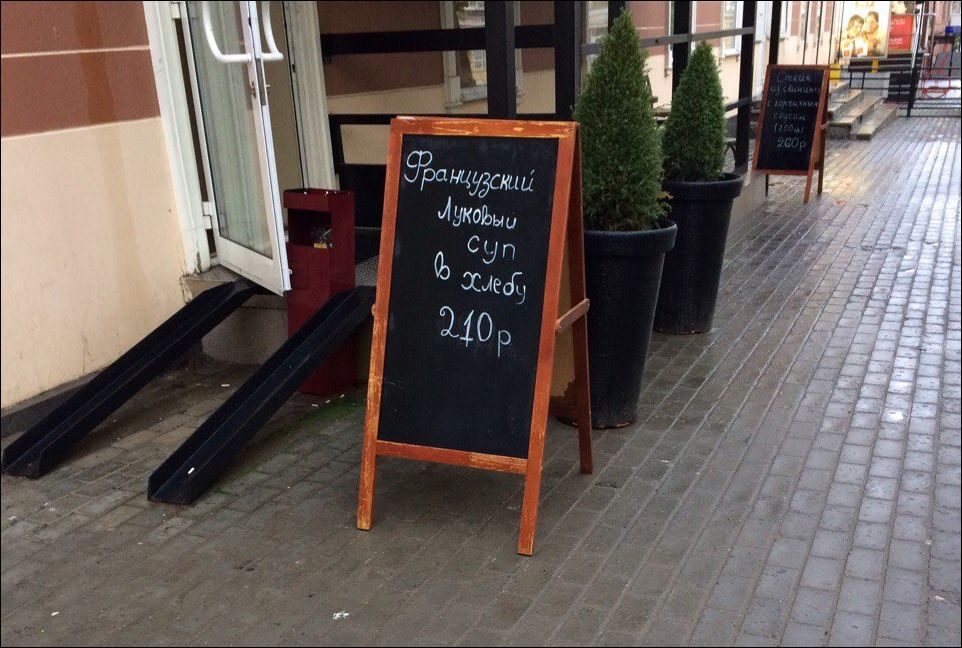 Французский
Луковый
суп
в хлебу
210р
Стейк
из свинины
с горчичным
соусом
260р